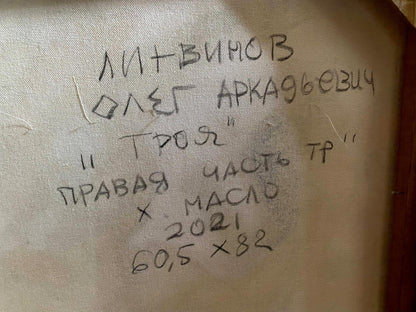 ЛИТВИНОВ
ОЛЕГ АРКАДЬЕВИЧ
"ТРОЯ"
ПРАВАЯ ЧАСТЬ ТР"
Х МАСЛО
2021
60,5 X 82